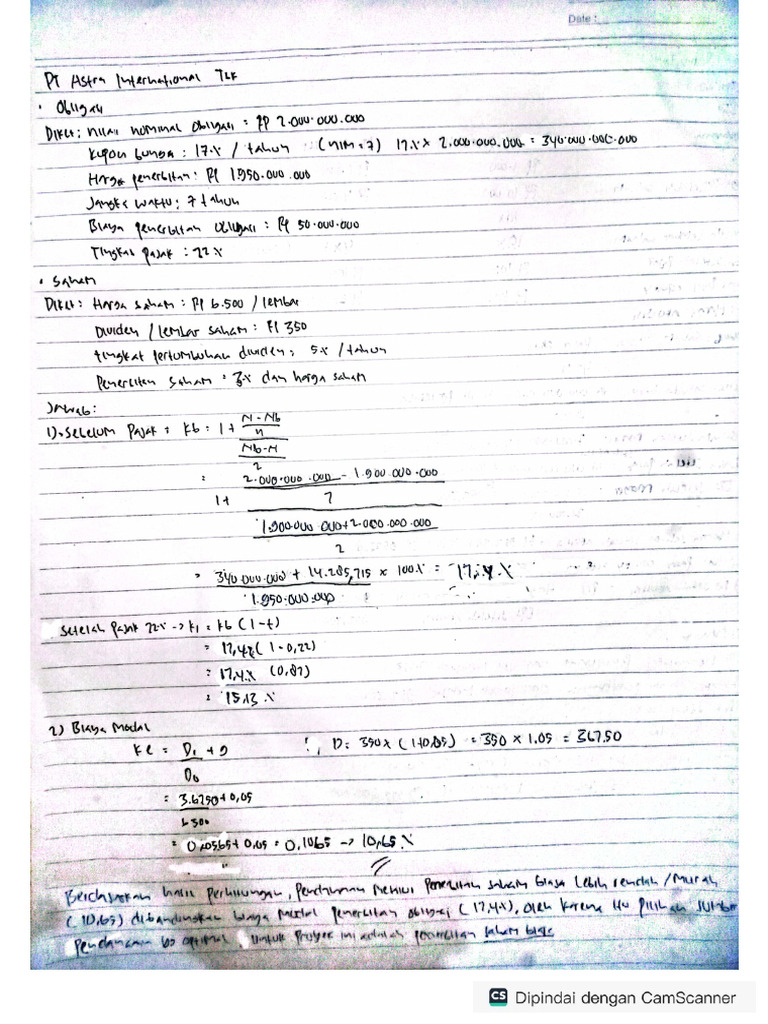 Date :
PT Astra International Tbk
• Obligasi
Diket : nilai nominal obligasi = Rp 2.000.000.000
Kupon bunga : 17% / tahun (n/m = 7) 17% x 2.000.000.000 = 340.000.000.000
Harga penerbitan : Rp 1.950.000.000
Jangka waktu : 7 tahun
Biaya penerbitan obligasi : Rp 50.000.000
Tingkat pajak : 22%
• Saham
Diket : Harga saham : Rp 6.500 / lembar
Dividen / lembar saham : Rp 350
tingkat pertumbuhan dividen : 5% / tahun
Penerbitan saham = 3% dari harga saham
Jawab :
1). Sebelum Pajak = kb = I + N - Nb
n
Nb-N
2
= 2.000.000.000 - 1.900.000.000
I + 7
1.900.000.000 + 2.000.000.000
2
= 340.000.000 + 14.285,715 x 100% = 17,4%
1.950.000.000
Setelah Pajak 22% -> k1 = kb (1-t)
= 17,4% (1-0,22)
= 17,4% (0,87)
= 15,13 %
2) Biaya Modal
ke = D1 + g D = 350 x (1+0,05) = 350 x 1.05 = 367.50
D0
= 3.6750 + 0,05
6500
= 0,0565 + 0,05 = 0,1065 -> 10,65%
Berdasarkan hasil perhitungan, Pendanaan melalui Penerbitan saham biasa lebih rendah / murah
(10,65) dibandingkan biaya modal penerbitan obligasi (17,4%), oleh karena itu pilihan sumber
pendanaan yg optimal untuk proyek ini adalah penerbitan saham biasa
CS Dipindai dengan CamScanner